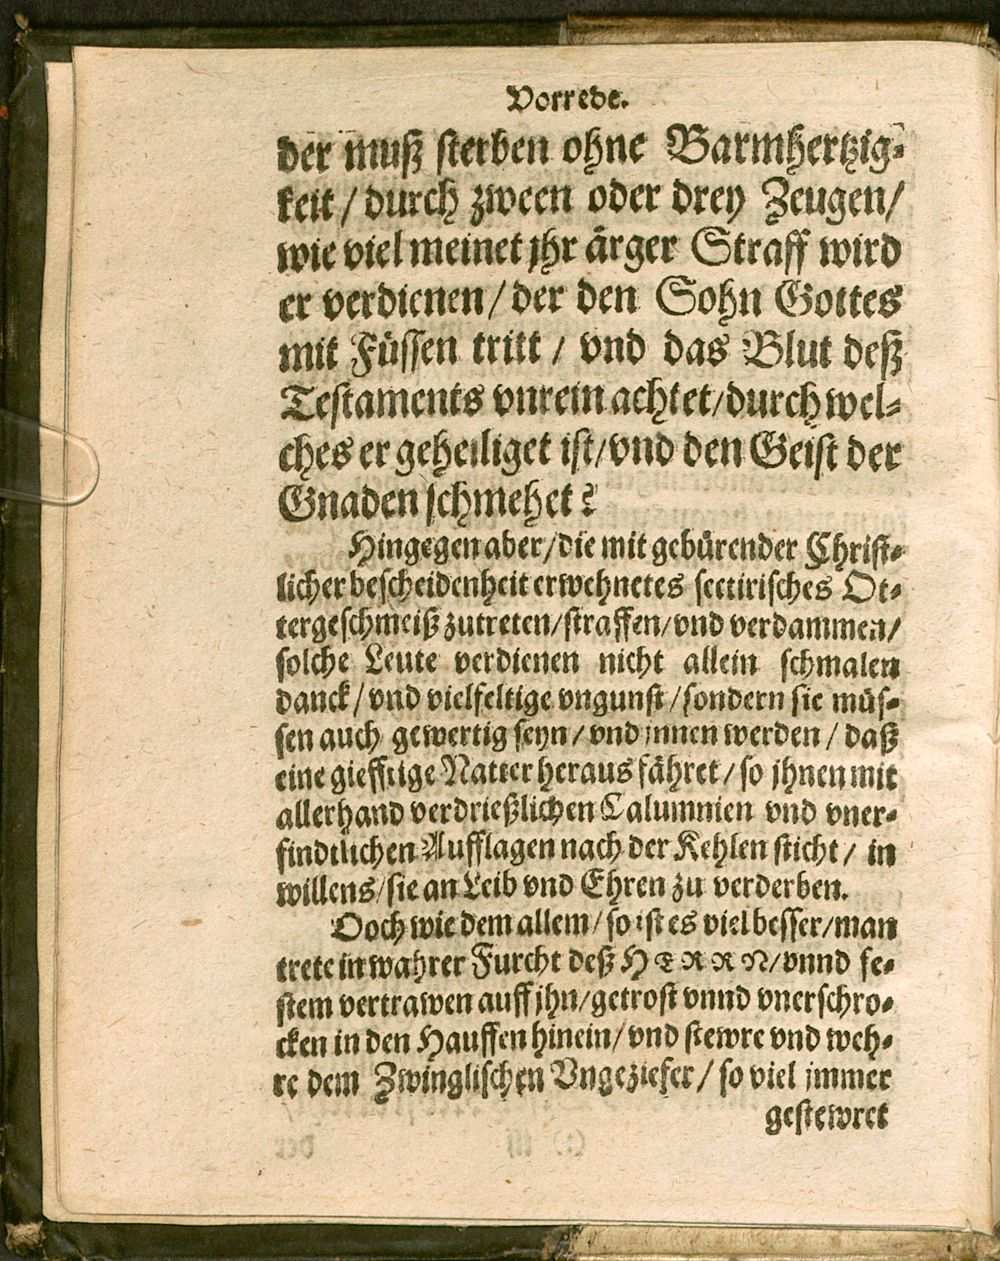 Vorrede.
der muß sterben ohne Barmhertzig-
keit / durch zween oder drey Zeugen /
wie viel meinet jhr ärger Straff wird
er verdienen / der den Sohn Gottes
mit Füssen tritt / vnd das Blut deß
Testaments vnrein achtet / durch wel-
ches er geheiliget ist / vnd den Geist der
Gnaden schmehet?
Hingegen aber / die mit gebürender Christ-
licher bescheidenheit erwehnetes sectirisches Ot-
tergeschmeiß zutreten / straffen / vnd verdammen /
solche Leute verdienen nicht allein schmalen
danck / vnd vielfeltige vngunst / sondern sie müs-
sen auch gewertig seyn / vnd jnnen werden / daß
eine giefftige Natter heraus fähret / so jhnen mit
allerhand verdrießlichen Calumnien vnd vner-
findtlichen Aufflagen nach der Kehlen sticht / in
willens / sie an Leib vnd Ehren zu verderben.
Doch wie dem allem / so ist es viel besser / man
trete in wahrer Furcht deß HERRN / vnnd fe-
stem vertrawen auff jhn / getrost vnnd vnerschro-
cken in den Hauffen hinein / vnd stewre vnd weh-
re dem Zwinglischen Vngeziefer / so viel jmmer
gestewret